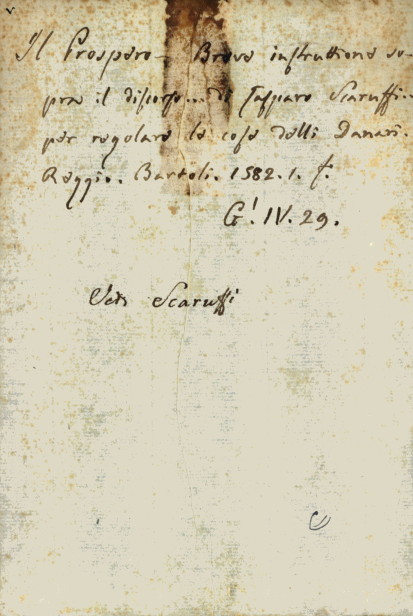 Il Prospero – Breve instruttione so-
pra il discorso... di Gasparo Scaruffi..
per regolare le cose delli Danari.
Reggio. Bartoli. 1582. 1. f.
G! IV. 29.
Scaruffi